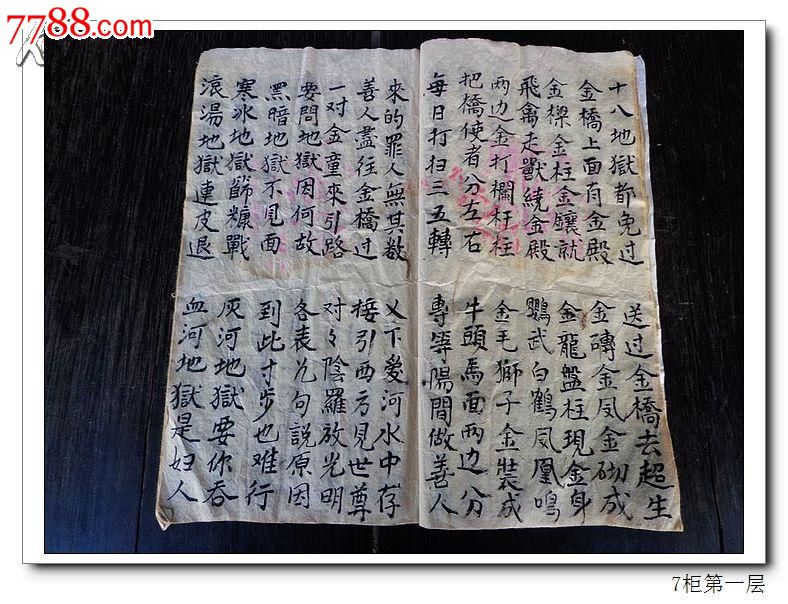 7788.com
十八地獄都免过 送过金橋去超生
金橋上面有金殿 金磚金凤金砌成
金樑金柱金鑲就 金龍盤柱現金身
飛禽走獸繞金殿 鸚武白鶴凤凰鳴
两边金打欄杆柱 金毛獅子金裝成
把橋使者分左右 牛頭馬面两边分
每日打扫三五轉 專等陽間做善人
來的罪人無其数 下爱河水中存
善人盡往金橋过 接引西方見世尊
一对金童來引路 对々陰羅放光明
要問地獄因何故 各表几句説原因
黑暗地獄不見面 到此寸步也难行
寒冰地獄篩糠戰 灰河地獄要你吞
滚湯地獄連皮退 血河地獄是妇人
7柜第一层